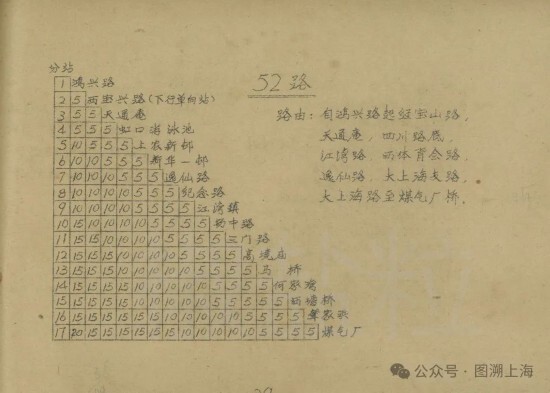 52路
分站
1 鸿兴路
2 5 西宝兴路(下行单向站)
3 5 5 天通庵
4 5 5 5 虹口游泳池
5 10 5 5 5 上农新邨
6 10 10 5 5 5 新华一邨
7 10 10 5 5 5 5 逸仙路
8 10 10 10 5 5 5 5 纪念路
9 10 10 10 10 5 5 5 5 江湾镇
10 15 10 10 10 10 5 5 5 5 场中路
11 15 15 10 10 10 10 5 5 5 5 三门路
12 15 15 15 10 10 10 10 5 5 5 5 高境庙
13 15 15 15 10 10 10 10 10 5 5 5 5 马桥
14 15 15 15 15 10 10 10 10 10 5 5 5 5 何家湾
15 15 15 15 15 10 10 10 10 10 10 5 5 5 5 西塘桥
16 15 15 15 15 15 15 10 10 10 10 10 5 5 5 5
17 20 15 15 15 15 15 15 10 10 10 10 10 5 5 5 5 煤气厂
路由：自鸿兴路起经宝山路，
天通庵，四川路底，
江湾路，西体育会路，
逸仙路，大上海大路，
大上海路至煤气厂桥。
公众号·图溯上海